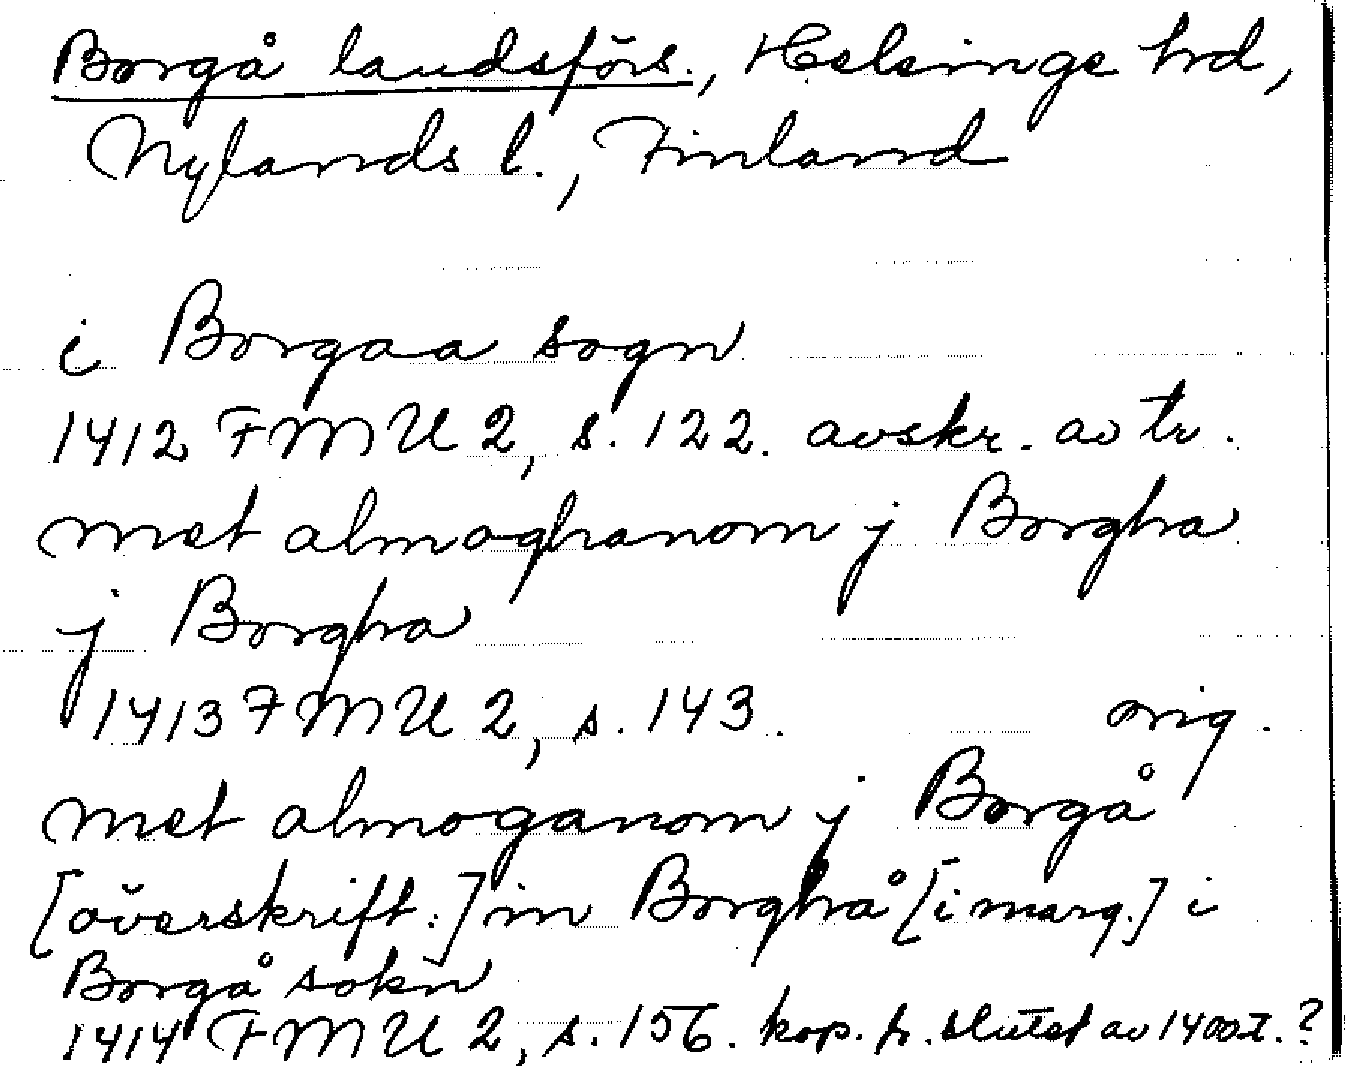 Borgå landsförs., Helsinge hrd,
Nylands l., Finland
i Borgaa sogn
1412 FMU 2, s. 122. avskr. av tr.
met almoghanom j Borgha
j Borgha
1413 FMU 2, s. 143. orig.
met almoganom j Borgå
[överskrift.] in Borghå [i marg.] i
Borgå sokn
1414 FMU 2, s. 156. kop. fr. slutet av 1400t.?